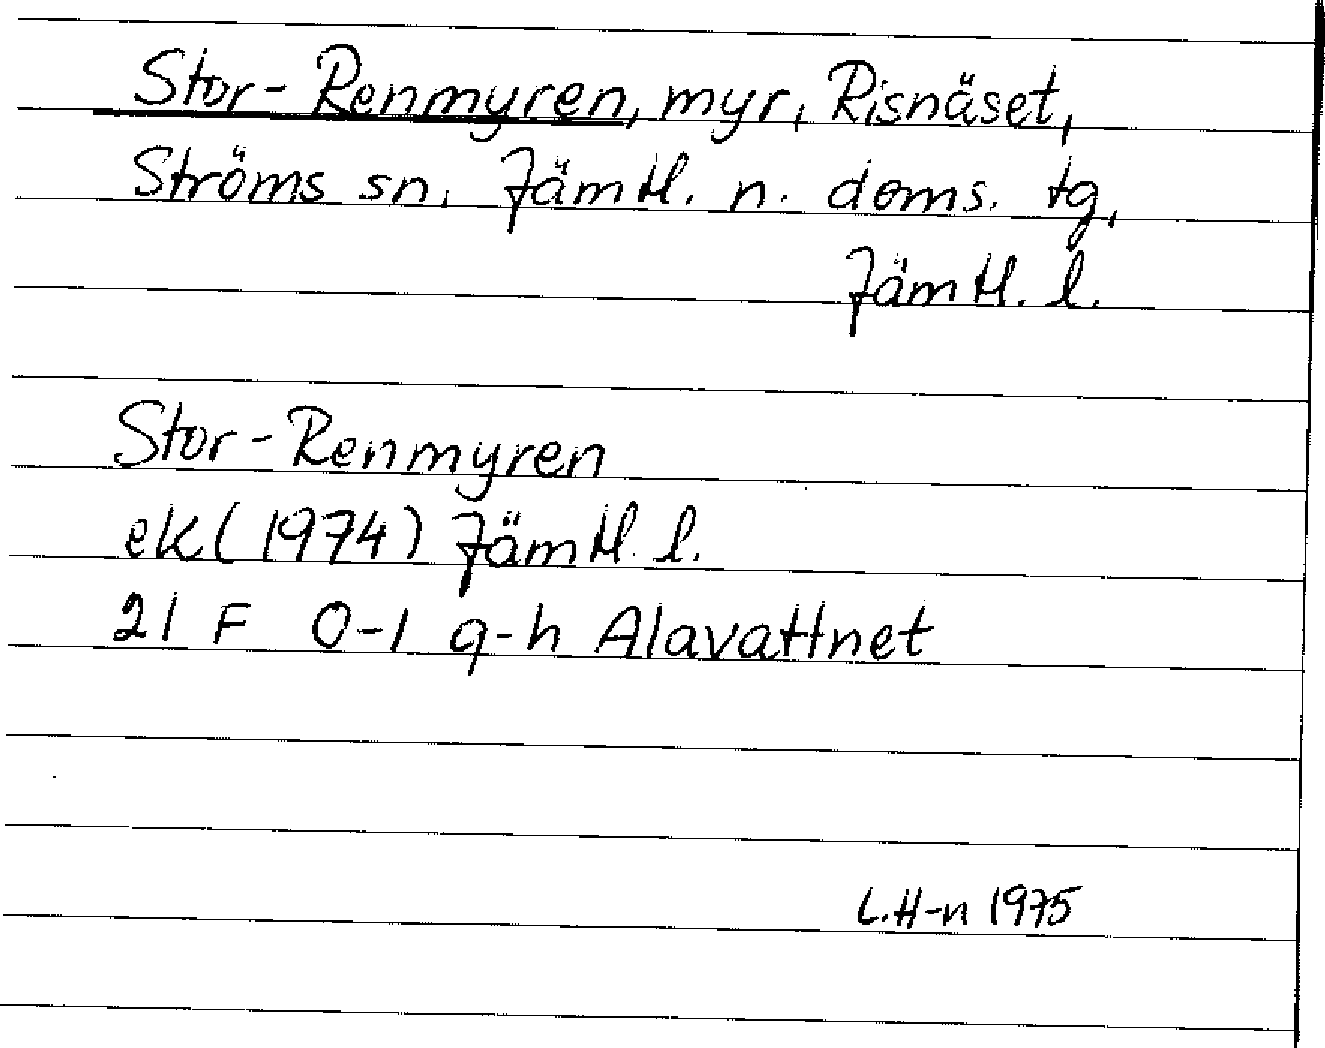 Stor-Renmyren, myr, Risnäset,
Ströms sn, Jämtl. n. doms. tg,
Jämtl. l.
Stor-Renmyren
ek(1974) Jämtl. l.
21 F 0-1 g-h Alavattnet
L.H-n 1975